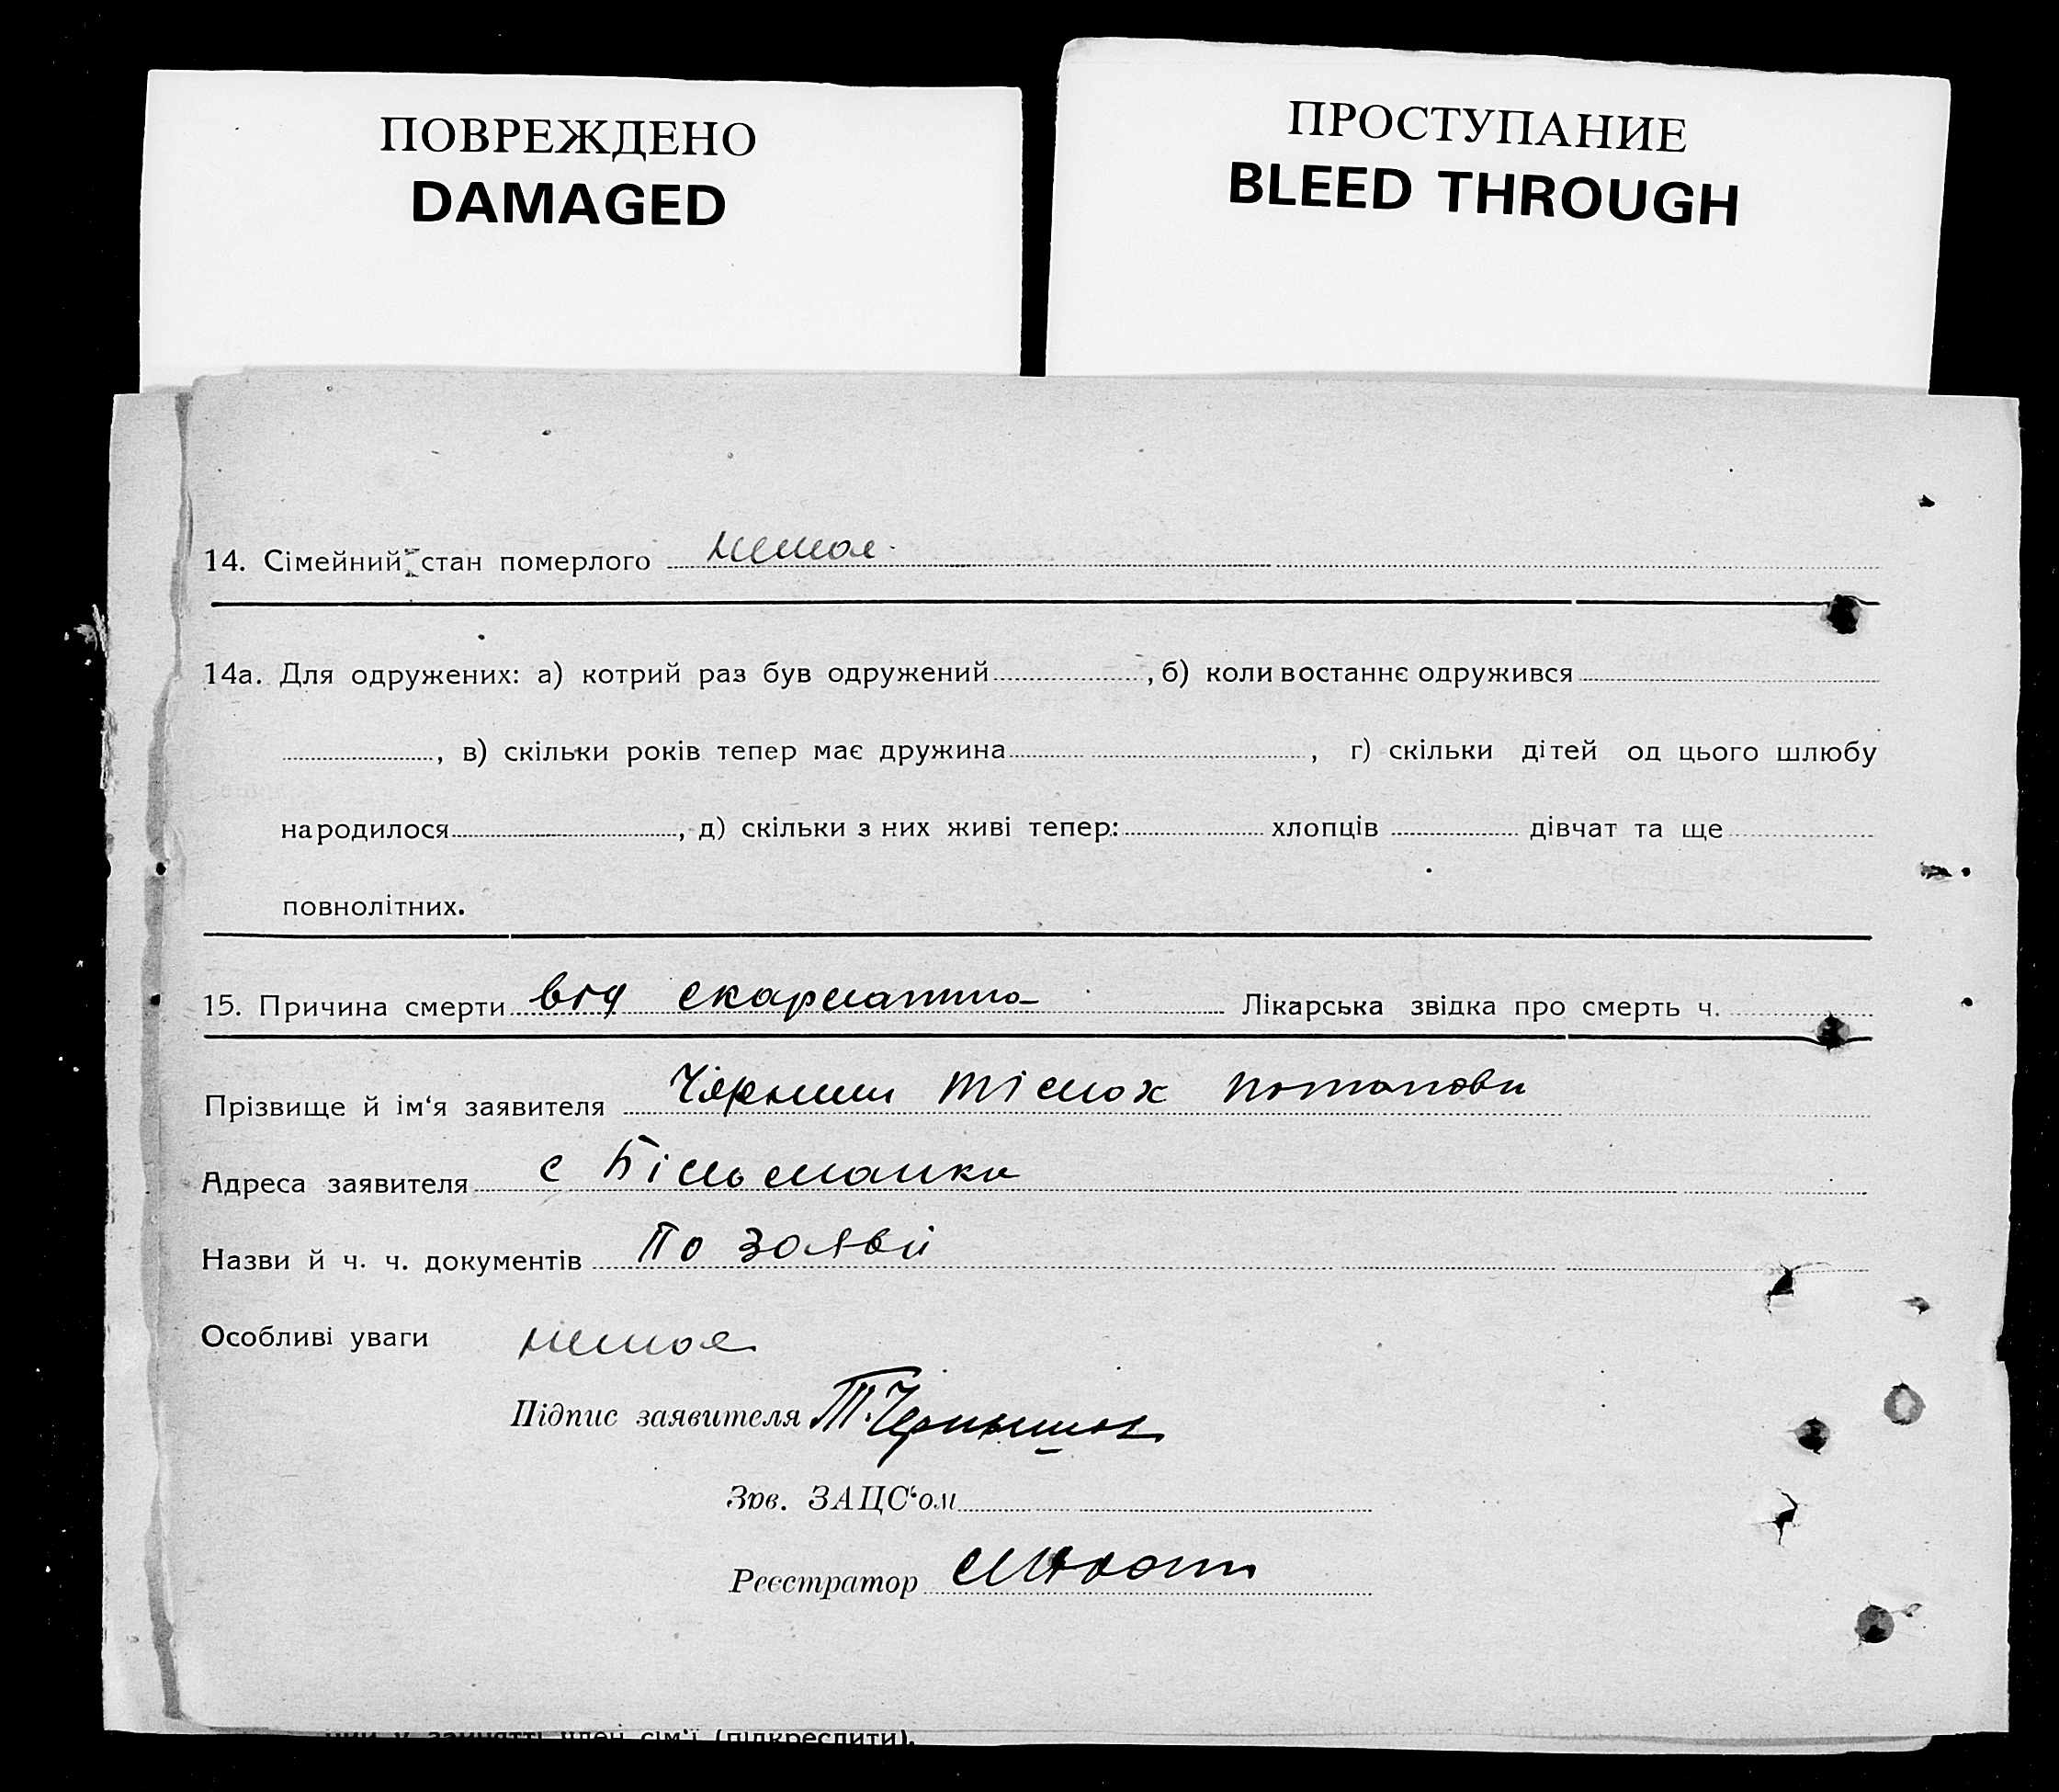 ПОВРЕЖДЕНО
DAMAGED
ПРОСТУПАНИЕ
BLEED THROUGH
14. Сімейний стан померлого немає
14а. Для одружених: а) котрий раз був одружений, б) коли востаннє одружився
, в) скільки років тепер має дружина, г) скільки дітей од цього шлюбу
народилося, д) скільки з них живі тепер: хлопців дівчат та ще
повнолітних.
15. Причина смерти від Лікарська звідка про смерть ч.
Прізвище й ім'я заявителя Тімох
Адреса заявителя с Більманка
Назви й ч. ч. документів По заяві
Особливі уваги немає
Підпис заявителя Т.
Зав. ЗАЦС'ом
Реєстратор
член сім'ї (підкреслити).